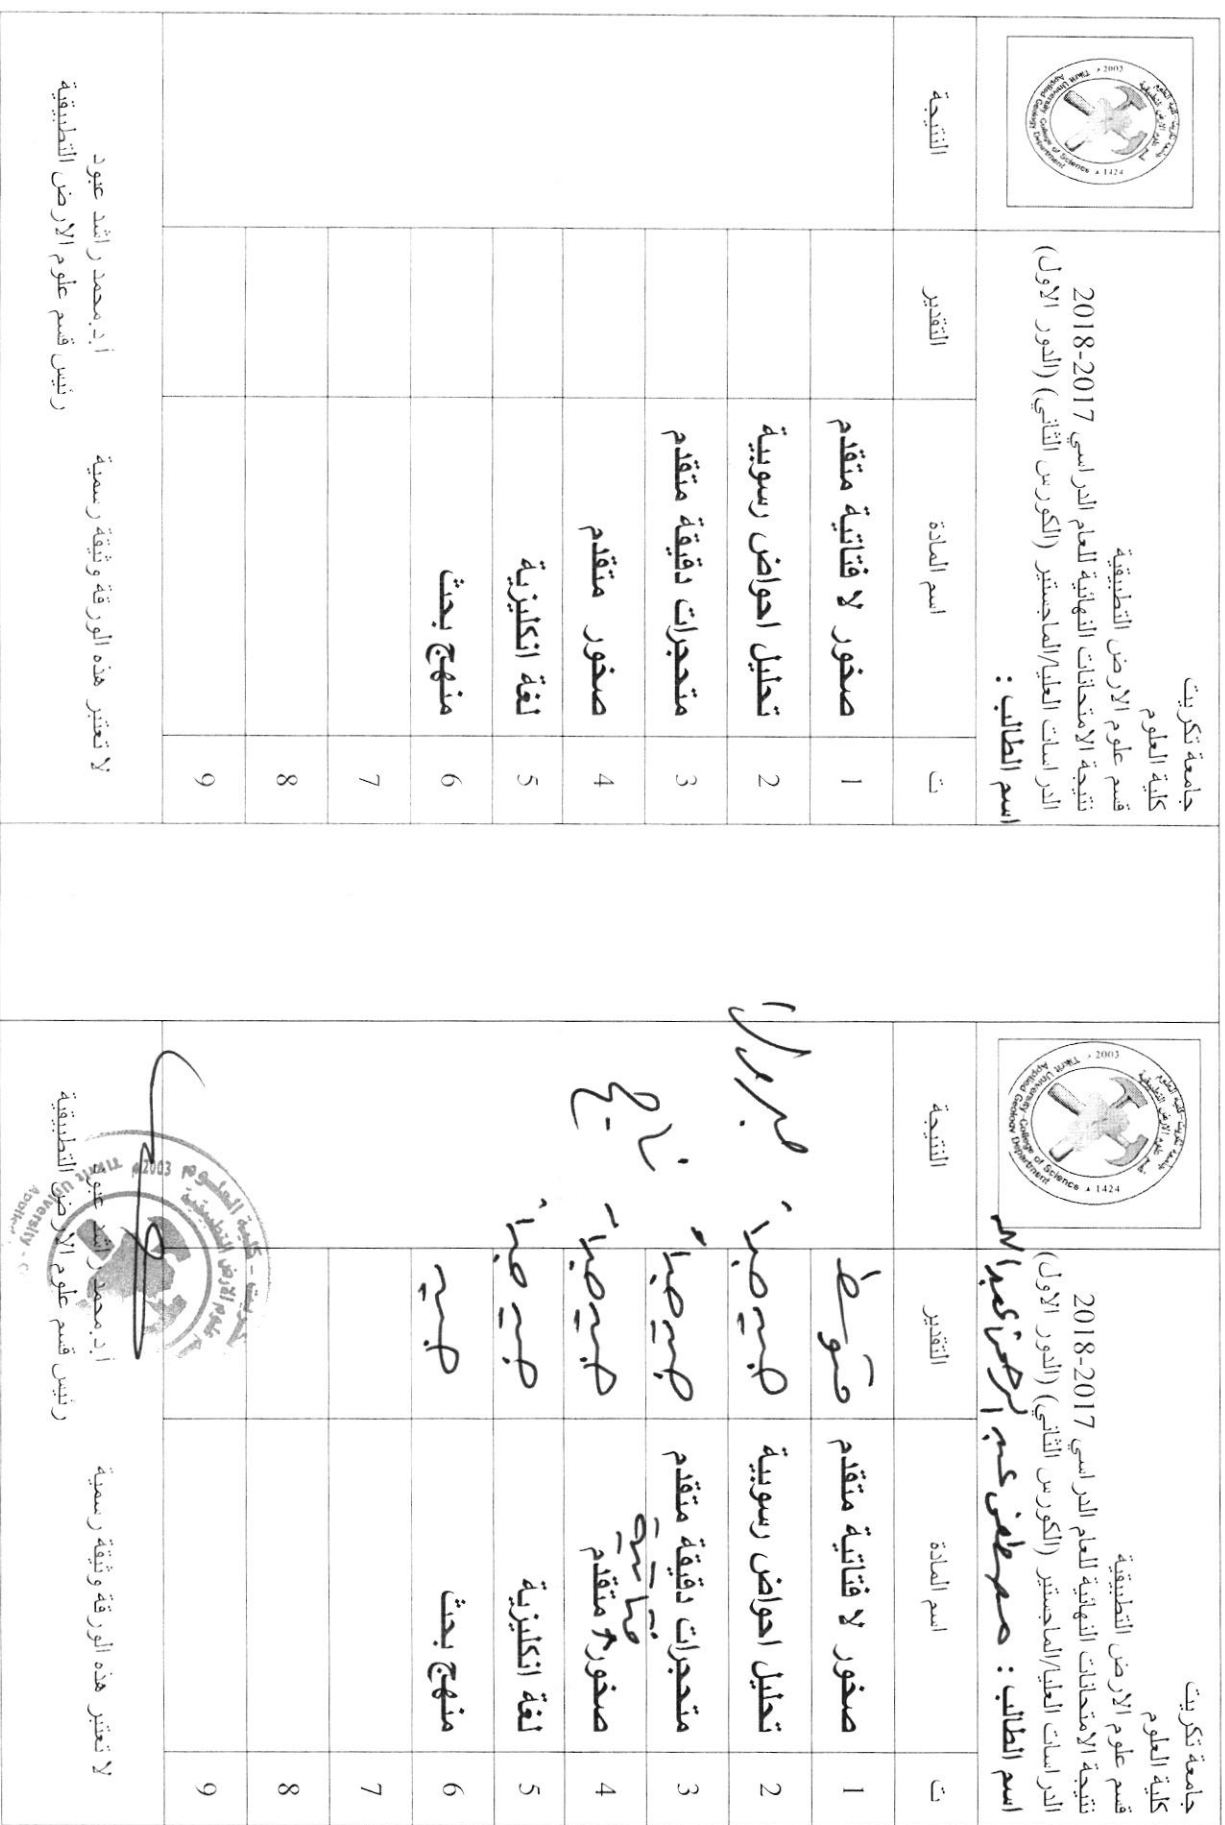 جامعة تكريت
كلية العلوم
قسم علوم الارض التطبيقية
نتيجة الامتحانات النهائية للعام الدراسي 2017-2018
الدراسات العليا/الماجستير (الكورس الثاني) (الدور الاول)
اسم الطالب :
Tikrit University-College of Science
Applied Geology Department
2003
1424
ت اسم المادة التقدير النتيجة
1 صخور لا فتاتية متقدم
2 تحليل احواض رسوبية
3 متحجرات دقيقة متقدم
4 صخور متقدم
5 لغة انكليزية
6 منهج بحث
7
8
9
لا تعتبر هذه الورقة وثيقة رسمية
أ.د.محمد راشد عبود
رئيس قسم علوم الارض التطبيقية
جامعة تكريت
كلية العلوم
قسم علوم الارض التطبيقية
نتيجة الامتحانات النهائية للعام الدراسي 2017-2018
الدراسات العليا/الماجستير (الكورس الثاني) (الدور الاول)
اسم الطالب : مصطفى عبد الرحمن عبدالله
Tikrit University-College of Science
Applied Geology Department
2003
1424
ت اسم المادة التقدير النتيجة
1 صخور لا فتاتية متقدم متوسط
2 تحليل احواض رسوبية جيد جداً
3 متحجرات دقيقة متقدم جيد جداً
4 صخور فتاتية متقدم جيد جداً ناجح
5 لغة انكليزية جيد جداً
6 منهج بحث جيد
7
8
9
لا تعتبر هذه الورقة وثيقة رسمية
أ.د.محمد راشد عبود
رئيس قسم علوم الارض التطبيقية